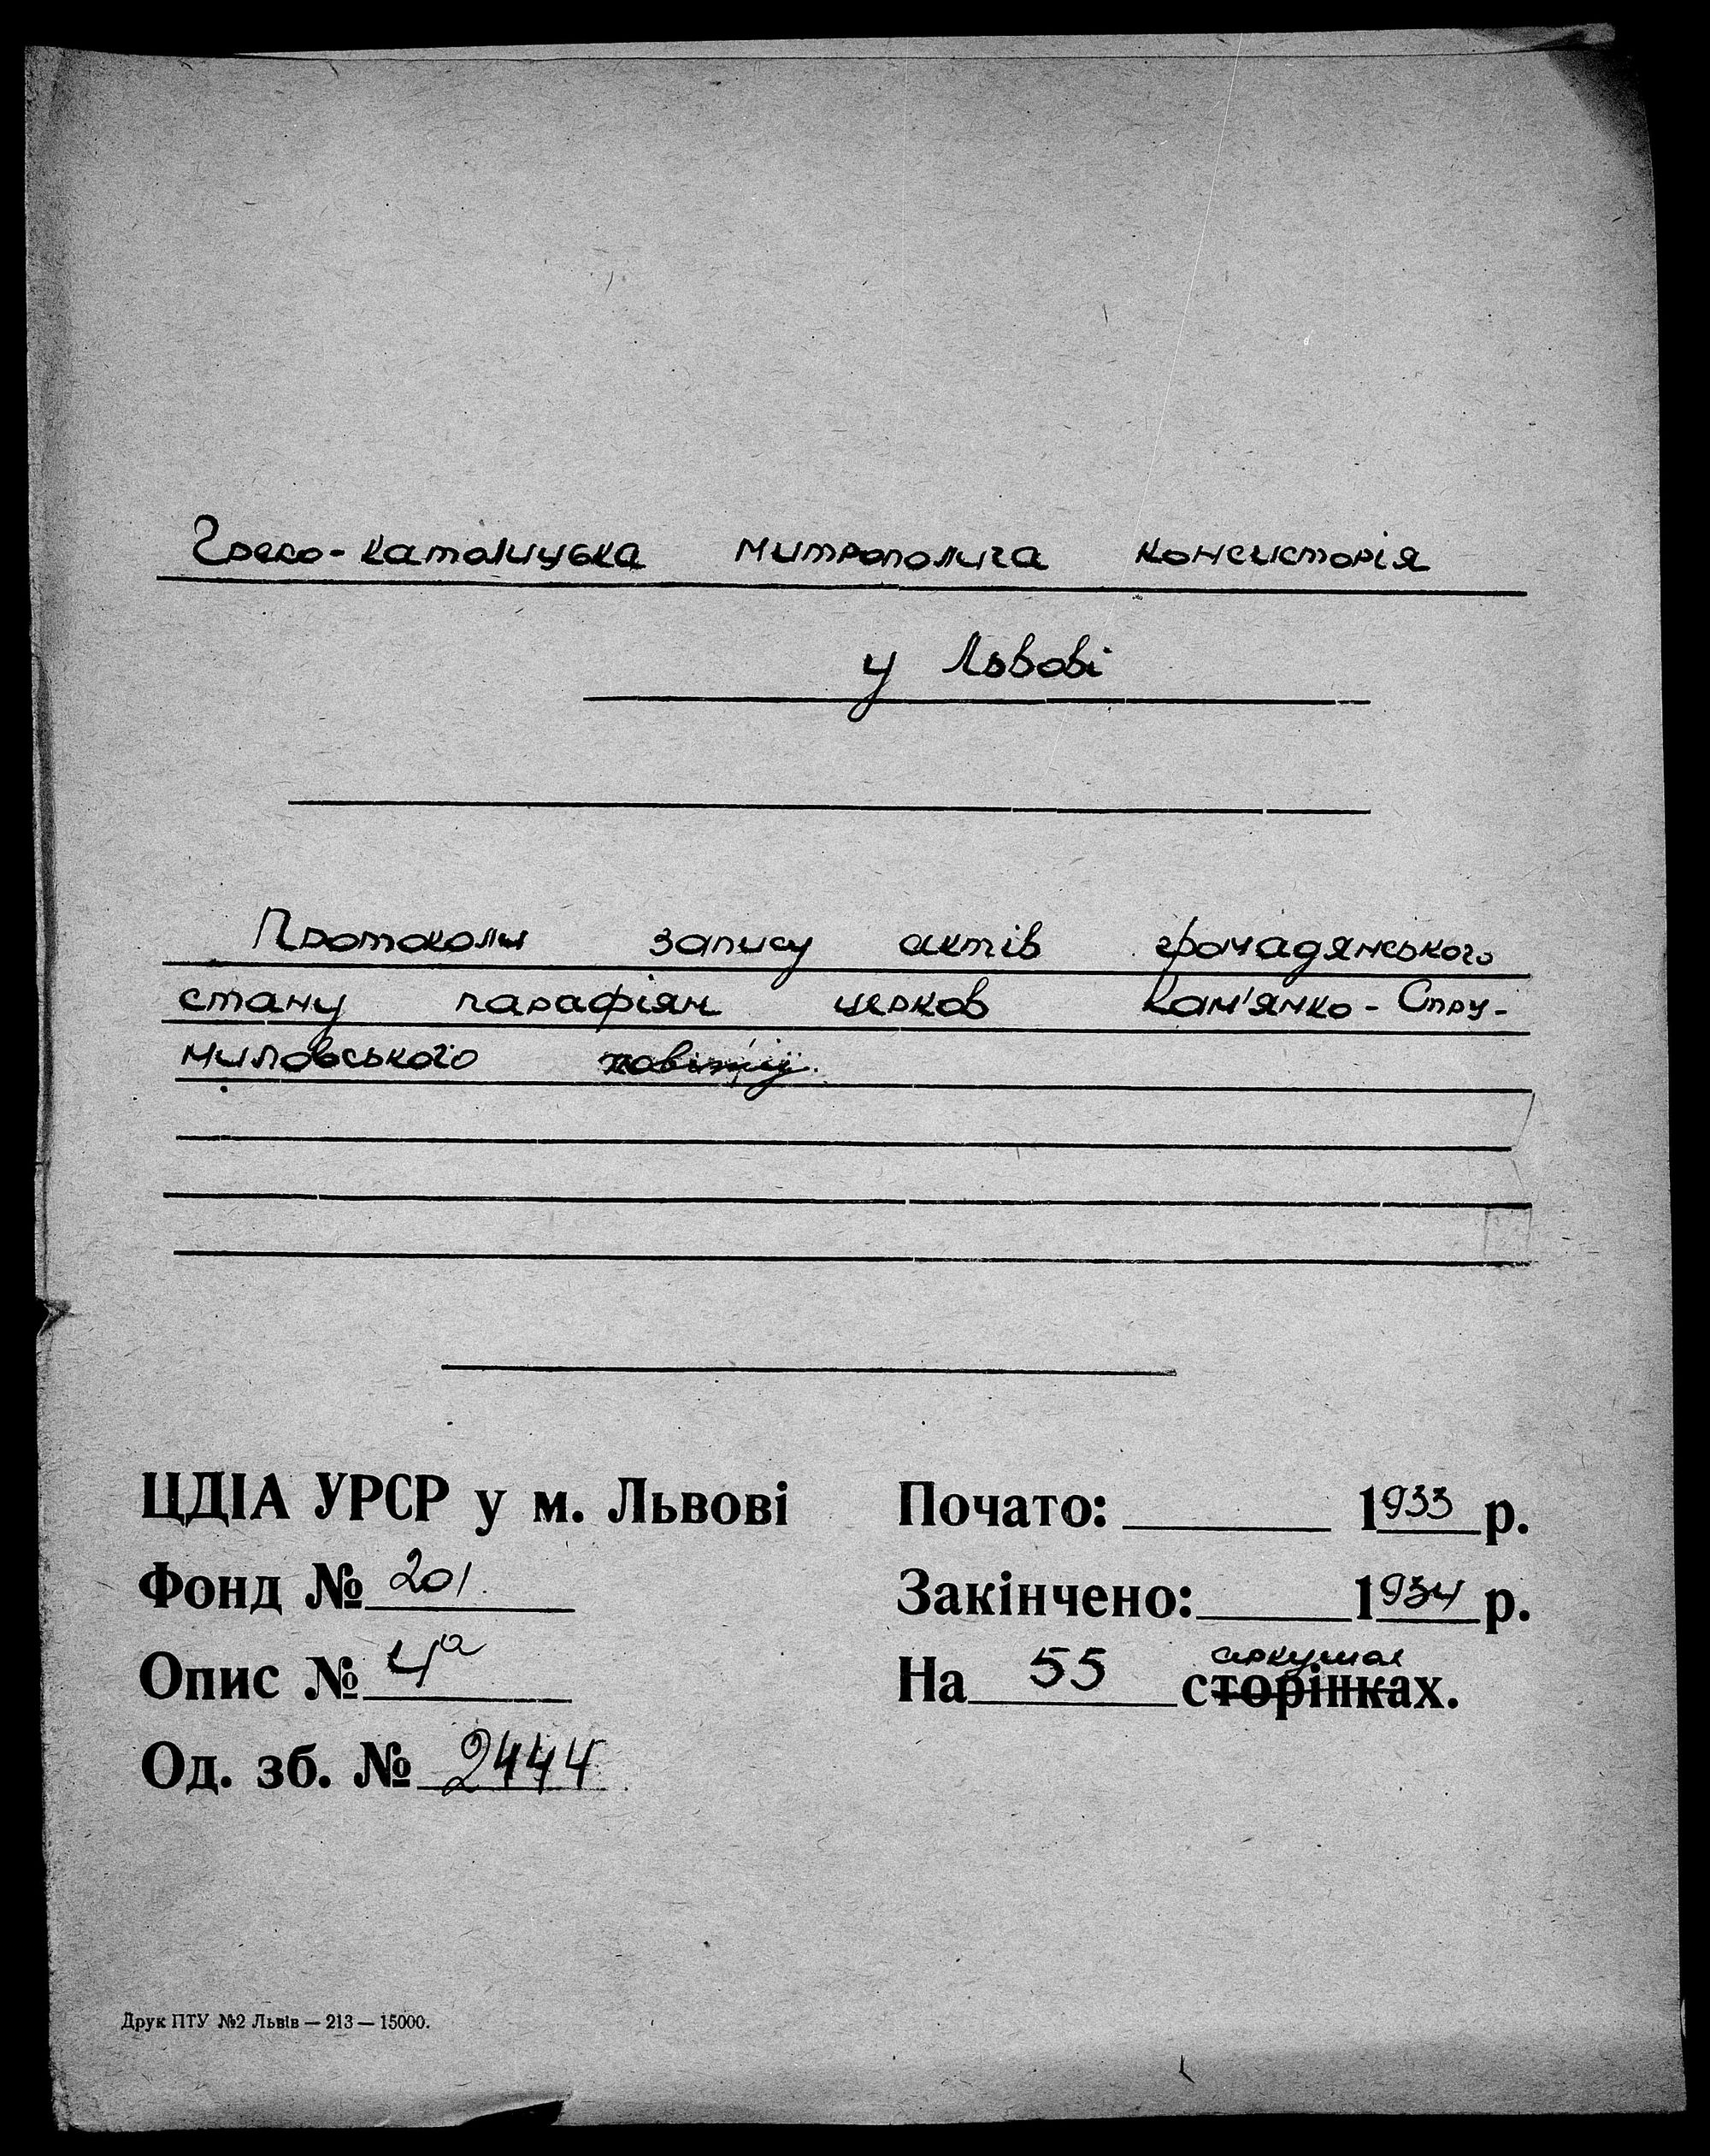 Греко-католицька митрополича консисторія
у Львові
Протоколи запису актів громадянського
стану парафіян церков Кам'янко-Стру-
миловського
ЦДІА УРСР у м. Львові
Фонд № 201.
Опис № 4а
Од. зб. № 2444
Почато: 1933 р.
Закінчено: 1934 р.
На 55 аркушах сторінках.
Друк ПТУ №2 Львів — 213 — 15000.